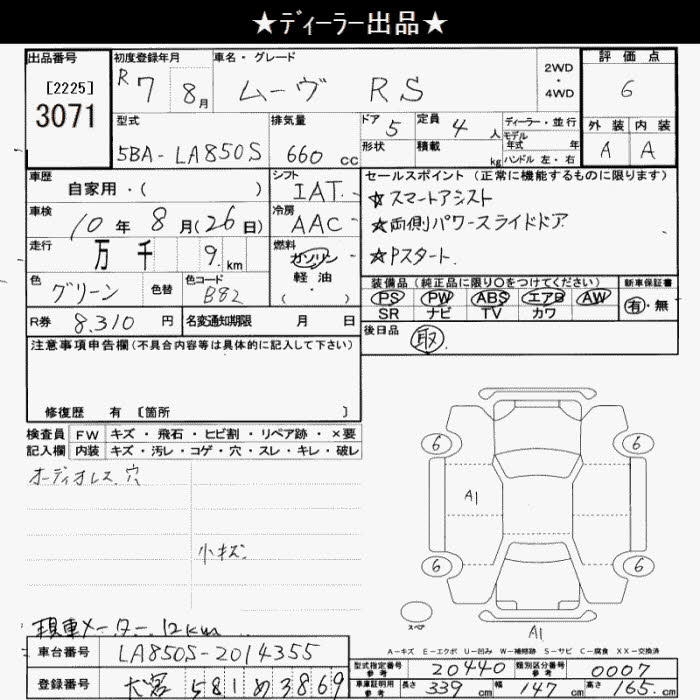 ★ディーラー出品★
出品番号 初度登録年月 車名・グレード 2WD・4WD 評価点
[2225] R 7 8月 ムーヴ RS 6
3071
型式 排気量 ドア 5 定員 4人 ディーラー・並行 外装 内装
5BA-LA850S 660 cc 形状 積載 kg モデル年式 年 A A
ハンドル 左・右
車歴 シフト セールスポイント (正常に機能するものに限ります)
自家用・( ) IAT
☆スマートアシスト
車検 冷房
10年 8月(26日) AAC ☆両側パワースライドドア
走行 燃料
万 千 9 km ガソリン ☆Pスタート
軽・油
色 色替 色コード ・( ) 装備品 (純正品に限り〇をつけてください) 新車保証書
グリーン B82 PS PW ABS エアB AW 有・無
SR ナビ TV カワ
R券 8.310 円 名変通知期限 月 日 後日品 取
注意事項申告欄(不具合内容等は具体的に記入して下さい)
修復歴 有 〔箇所 〕
検査員 FW キズ・飛石・ヒビ割・リペア跡・×要
記入欄 内装 キズ・汚レ・コゲ・穴・スレ・キレ・破レ
オーディオレス.穴
6 6
A1
小キズ
6 6
スペア
A1
現車メーター.12km
A-キズ E-エクボ U-凹み W-補修跡 S-サビ C-腐食 XX-交換済
車台番号 LA850S-2014355 型式指定番号 参考 20440 類別区分番号 参考 0007
登録番号 581 め 3869 車庫証明用 参考 長さ 339 cm 幅 147 cm 高さ 165 cm